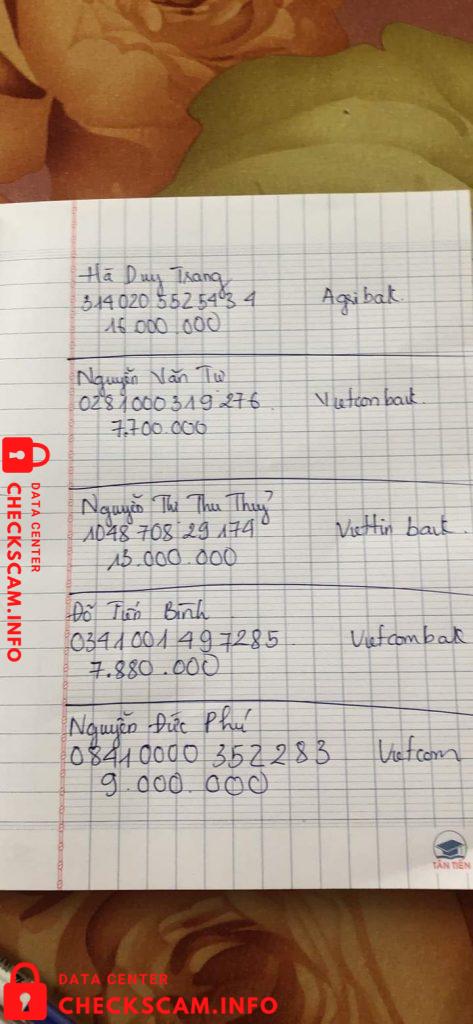 Hà Duy Trang
314 020 552 543 4 Agribak.
16.000.000
Nguyễn Văn Tư
0281000319276 Vietcombank.
7.700.000
Nguyễn Thị Thu Thuỷ
1048 708 29 174 Viettin bank.
13.000.000
Đỗ Tiến Bình
0341001497285. Vietcombak
7.880.000
Nguyễn Đức Phú
08410000 352283 Vietcom
9.000.000
DATA CENTER
CHECKSCAM.INFO
TÂN TIẾN
DATA CENTER
CHECKSCAM.INFO